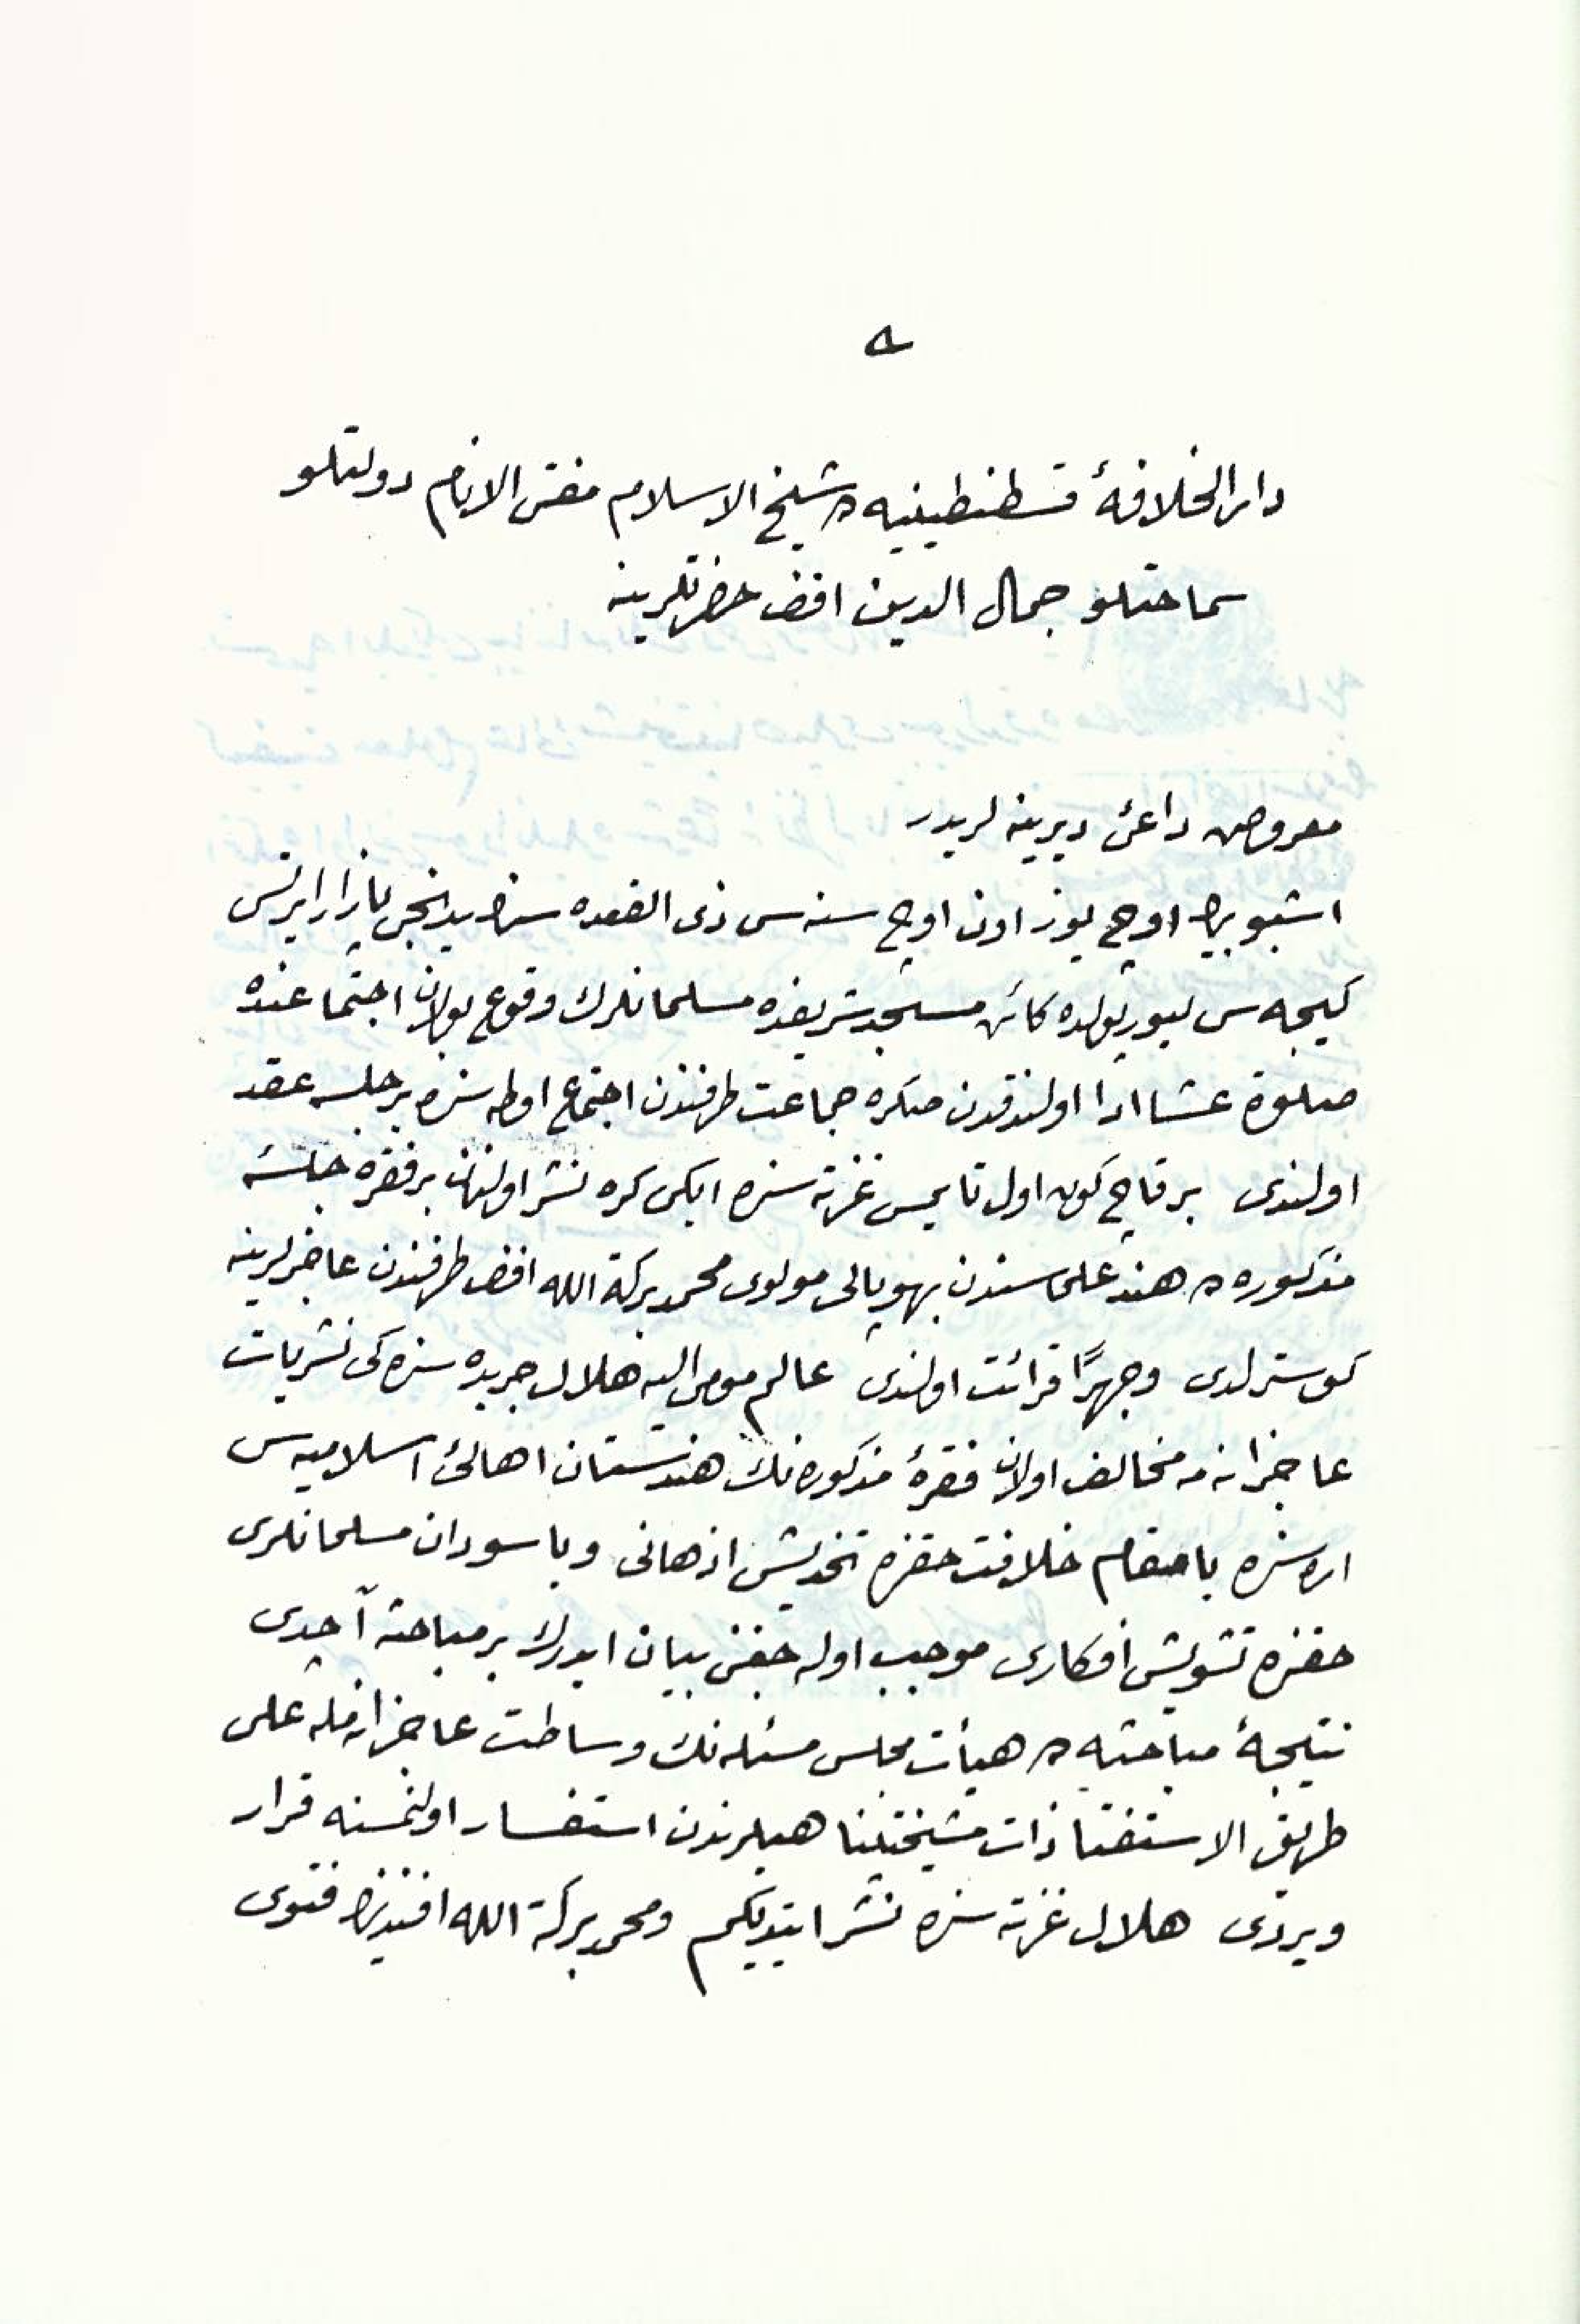 دار الخلافهٔ قسطنطينيه ده شيخ الاسلام مفتى الانام دولتلو
سماحتلو جمال الدين افندى حضرتلرينه
معروض داعئ ديرينه لريدر
اشبو بيك اوچ يوز اون اوچ سنه سى ذى القعده سنك يدنجى پازار ايرتسى
كيجه سى ليورپولده كائن مسجد شريفده مسلمانلرك وقوع بولان اجتماعنده
صلوة عشا ادا اولندقدن صكره جماعت طرفندن اجتماع اوطه سنده بر جلسه عقد
اولندى بر قاچ كون اول تايمس غزته سنده ايكى كره نشر اولنان بر فقره جلسهٔ
مذكوره ده هند علماسندن بهوپالى مولوى محمد بركة الله افندى طرفندن عاجزلرينه
كوسترلدى وجهرًا قرائت اولندى عالم مومى اليه هلال جريده سنده كى نشريات
عاجزانه مه مخالف اولان فقرهٔ مذكوره نك هندستان اهالئ اسلاميه سى
اره سنده يا مقام خلافت حقنده تخديش اذهانى ويا سودان مسلمانلرى
حقنده تشويش افكارى موجب اوله جغنى بيان ايدرك بر مباحثه آچدى
نتيجهٔ مباحثه ده هيأت مجلس مسئله نك وساطت عاجزانه مله على
طريق الاستفتا ذات مشيختپناهيلرندن استفسار اولنمسنه قرار
ويردى هلال غزته سنده نشر ايتديكم ومحمد بركة الله افندينك فتوى